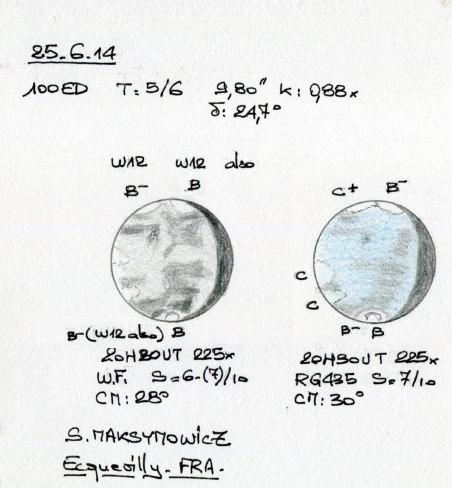 25.6.14
100ED T: 5/6 9,80" K: 0,88x
δ: 24,7°
W12 W12 also
B⁻ B
C+ B⁻
C
C
B⁻ (W12 also) B
20H20UT 225x
W.F. S=6-(7)/10
CM: 28°
B⁻ B
20H30UT 225x
RG435 S=7/10
CM: 30°
S. MAKSYMOWICZ
Ecquevilly. FRA.